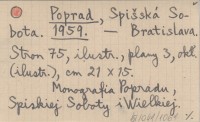 Poprad, Spišská So-
bota. 1959. — Bratislava.
Stron 75, ilustr., plany 3, okł.
(ilustr.), cm 21 × 15.
Monografia Popradu,
Spiskiej Soboty i Wielkiej.